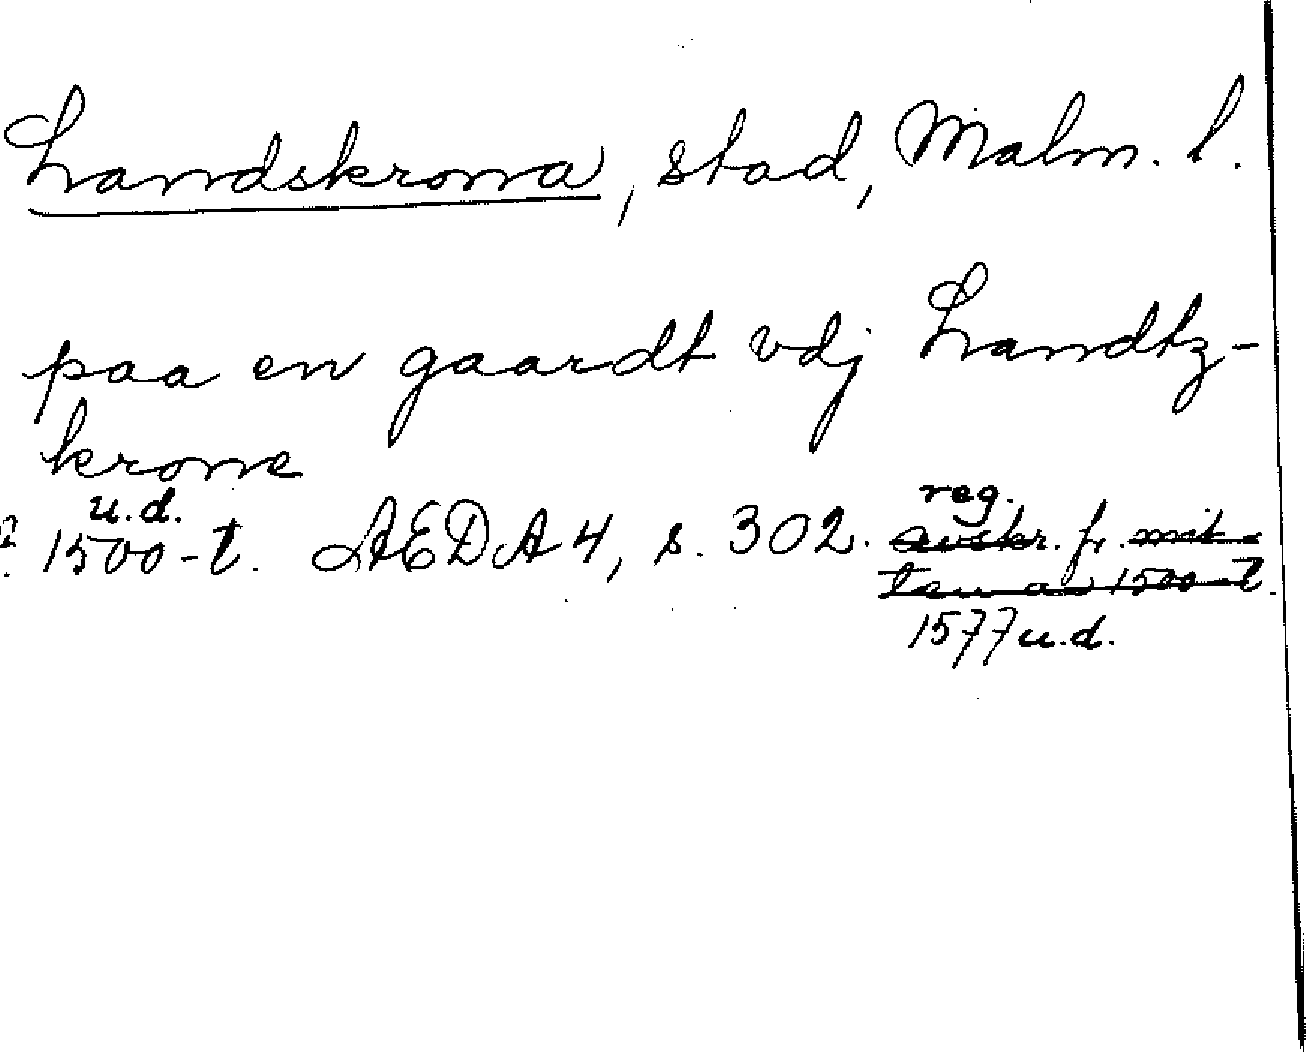 Landskrona, stad, Malm. l.
paa en gaardt vdj Landtz-
krone
u.d. reg.
? 1500-t. AEDA 4, s. 302. avskr. fr. mit-
ten av 1500-t.
1577 u.d.